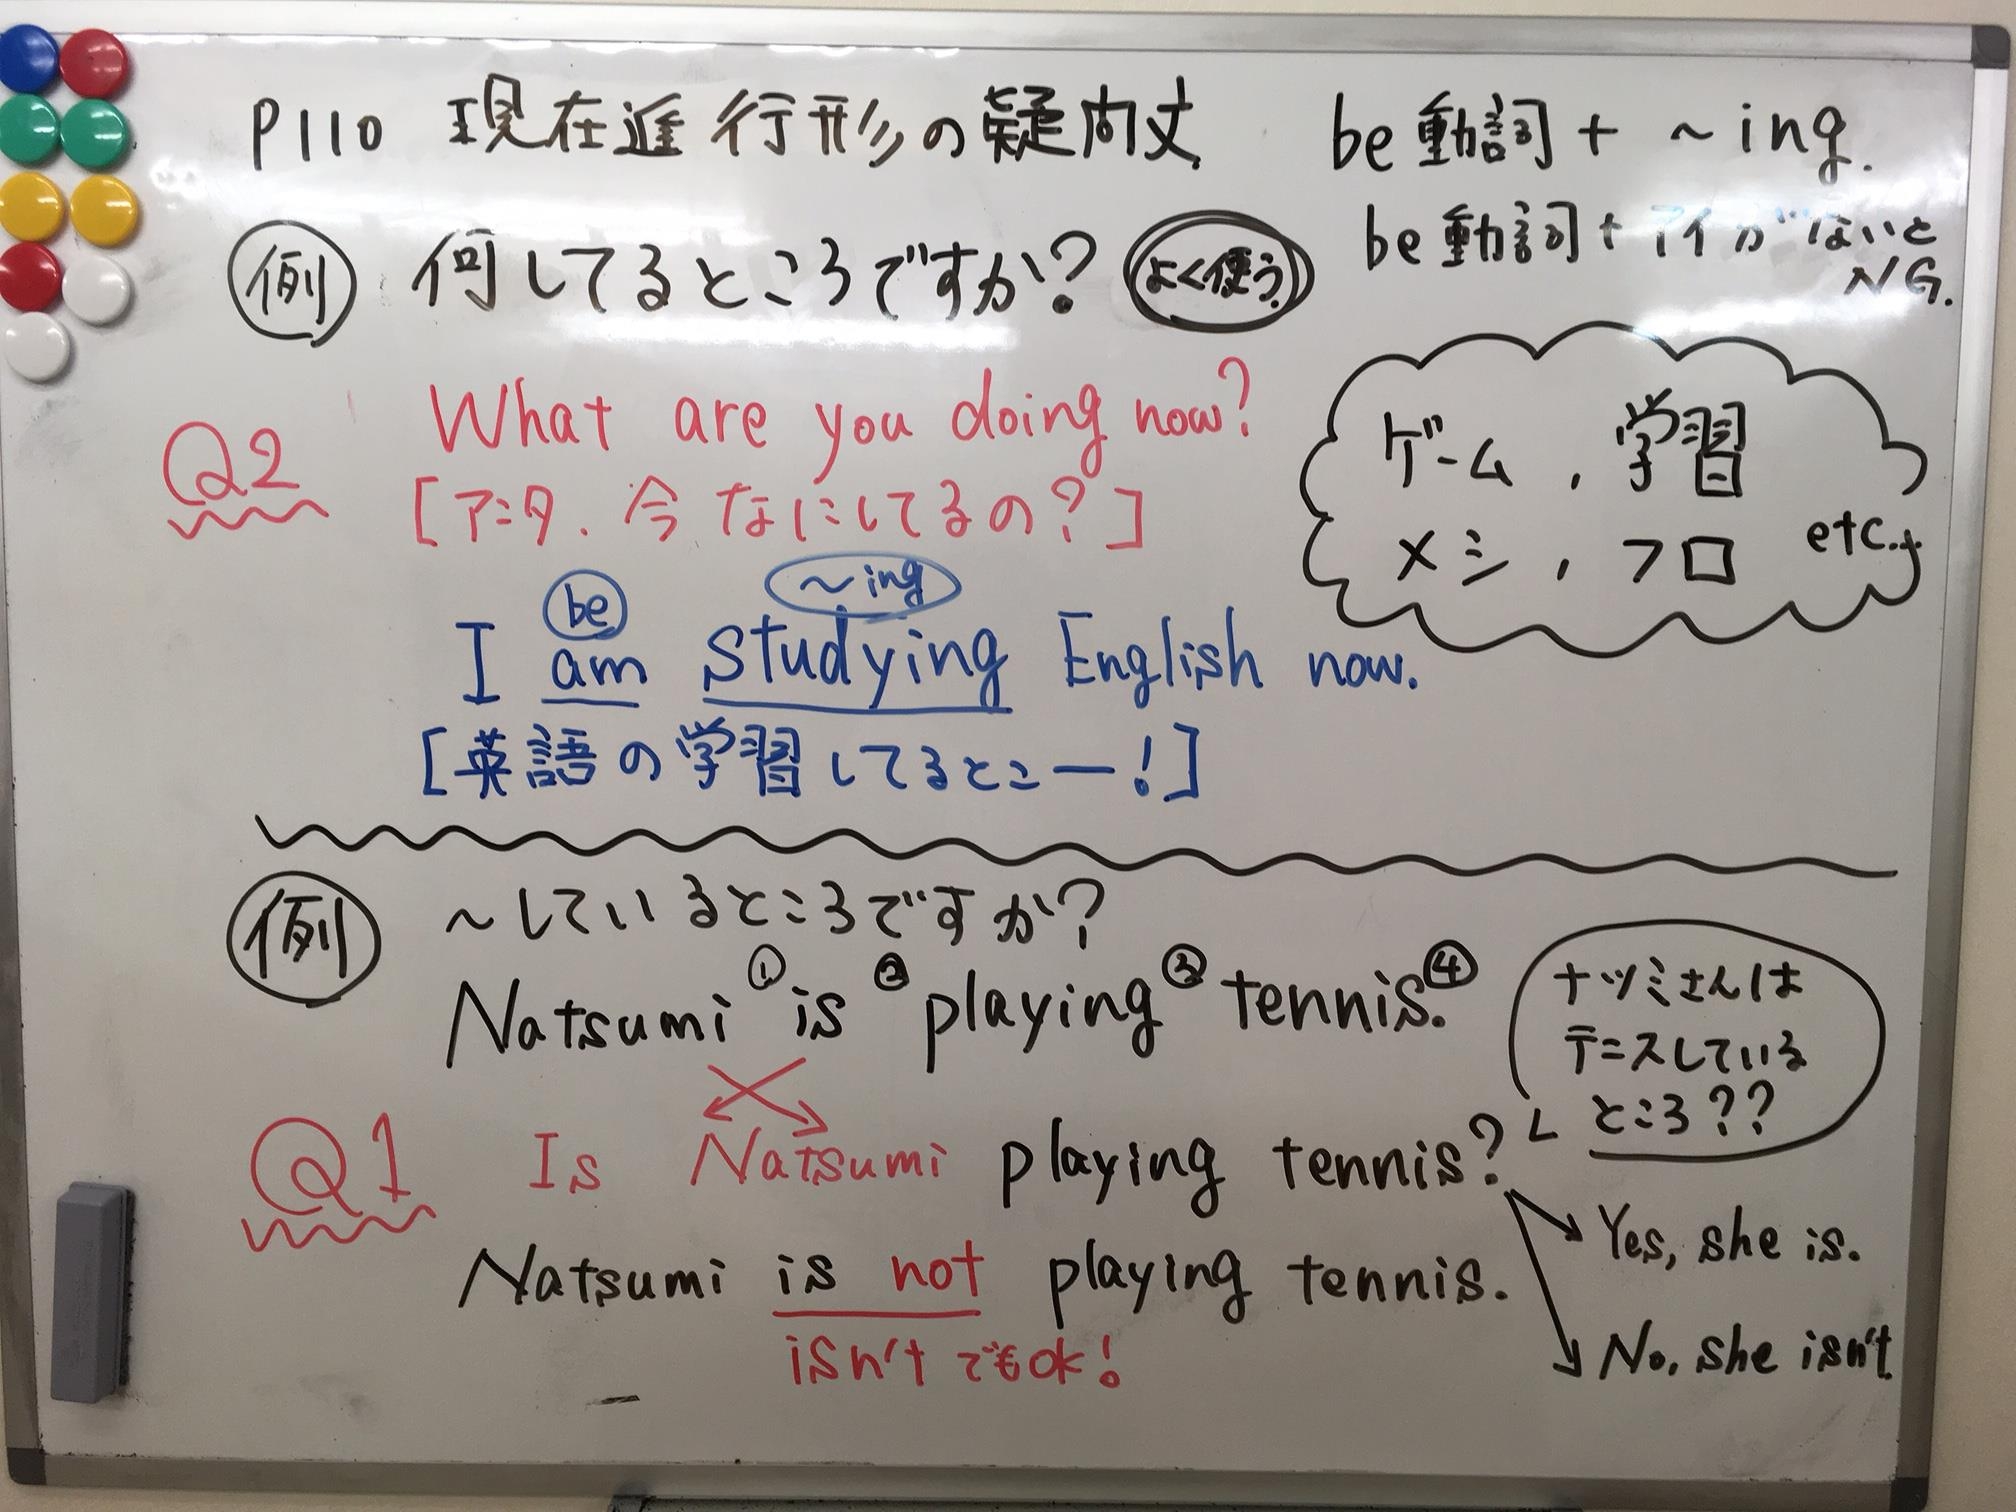 P110 現在進行形の疑問文
be動詞 + ~ing.
be動詞+アイがないと
NG.
例 何してるところですか? よく使う!
Q2 What are you doing now?
[アニタ. 今なにしてるの?]
ゲーム, 学習
メシ, フロ etc..
be ~ing
I am studying English now.
[英語の学習してるとこー!]
例 ~しているところですか?
Natsumi ① is ② playing ③ tennis. ④
ナツミさんは
テニスしている
ところ??
Q1 Is Natsumi playing tennis?
Yes, she is.
Natsumi is not playing tennis.
isn't でもOK!
No, she isn't.